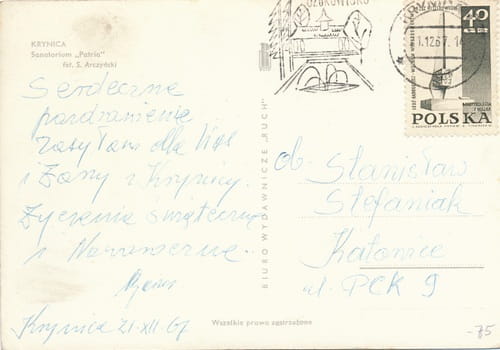 KRYNICA
Sanatorium „Patria"
fot. S. Arczyński
Serdeczne
pozdrowienia
zasyłam dla Was
i Żony z Krynicy.
Życzenia świąteczne
i Noworoczne.
Krynica 21-XII-67
BIURO WYDAWNICZE „RUCH"
Wszelkie prawa zastrzeżone
UZDROWISKO
40
GR
POLSKA
ob. Stanisław
Stefaniak
Katowice
ul. PCK 9
-75